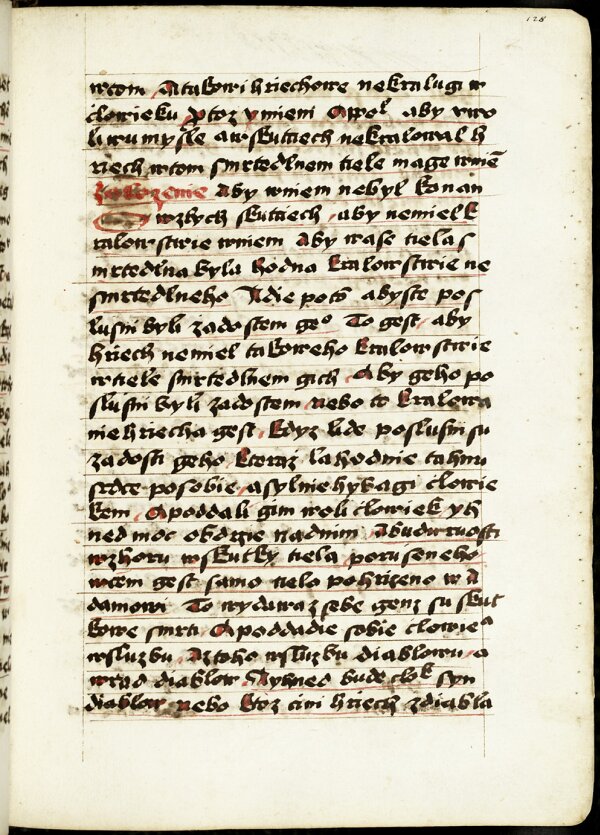 128
wtom A takowi hriechowe nekralugi w
clowieku ptoz ymieni Apoł aby wwo
li w umysle a w skutciech nekralowal h
riech wtom smrtedlnem tiele mage wmē
Zalozenie Aby wniem nebyl konan
wzlych skutciech aby nemiel k
ralowstwie wniem Aby wase tiela s
mrtedlna byla hodna kralowstwie ne
smrtedlneho Adie potō abyste pos
lusni byli zadostem geº To gest aby
hriech nemiel takoweho kralowstwie
wtiele smrtedlnem gich Aby geho po
slusni byli zadostem nebo to kralowa
nie hriecha gest kdyz lide poslusni su
zadosti geho kteraz lahodnie tahnu
srdce posobie a sylnie hykagi clowie
kem A poddali gim woli clowiek yh
ned moc obdrzie nadnim A budu wuosti
wzhoru wskutky tiela poruseneho
wcem gest samo tielo pohrizeno w A
damowi To wydawaz sebe genz su skut
kowe smrti A poddadie sobie clowieª
wsluzbu A z toho wsluzbu diablowu a
wrad diablow A yhned bude cloᵏ syn
diablow nebo ktoz cini hriech zdiabla